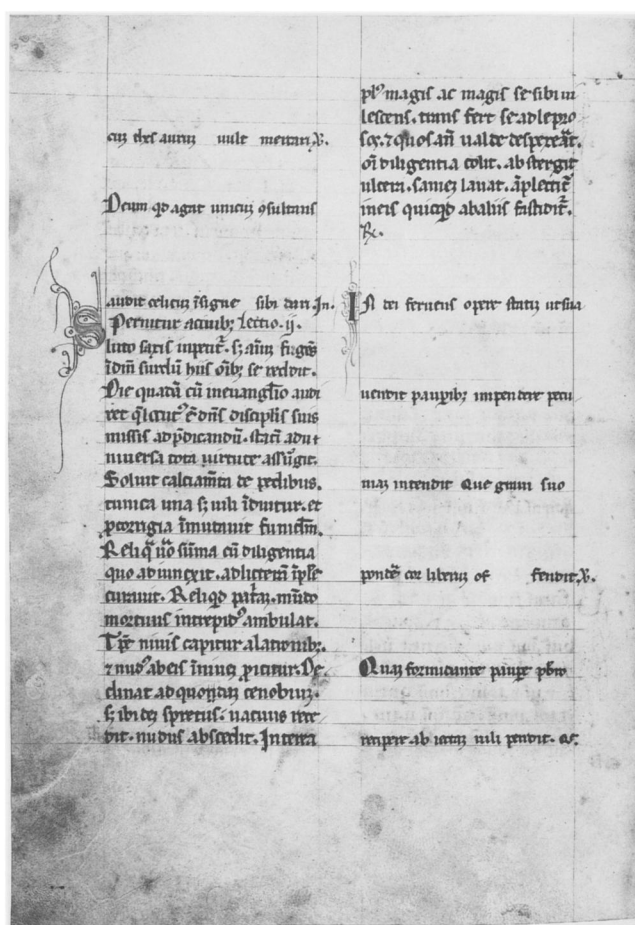 Deum qd agat unicum ꝯsultans
audit celicum ĩsigne sibi dari. In.
Lectio .ii.
luto satis inpetit̃. sʒ
surdũ hiis oĩbꝫ se reddit.
Die quadã cũ in euanglĩo audi
ret q̃ locutꝰ ẽ dñs discipĩis suis
missis ad p̃dicandũ. statĩ ad u
niuersa tota uirtute assurgit.
Soluit calciamẽta de pedibus.
tunica una sʒ uili ĩduitur. et
ꝓ corrigia ĩmutauit funicĩm.
Reliq̃ ũo sũma cũ diligentia
quo adiunxit. ad litterã ĩplẽ
curauit.
mortuus intrepidꝰ ambulat.
Tp̃e niuis capitur a latronibꝫ.
⁊ nudꝰ ab eis ĩ niuẽ ꝓicitur. De
clinat ad quoddam cenobium.
sʒ ibidẽ spretus. uacuus rece
dit. nudus abscedit. Interea
plꝰ magis ac magis se sibi ui
lescens. transfert se ad lepro
sos. ⁊ quos añ ualde despexeãt.
oĩ diligentia colit. abstergit
ulcera. saniem lauat. ãplectit̃
in eis quicqd ab aliis fastidit̃.
R̃.
In dei feruens opere statim ut sua
uendit pauꝑibꝫ impendere pecu
niam intendit Que graui suo
pondẽ cor liberum of fendit. V.
Quam formidante pauꝑe pb̃ro
recipere abiectam uili pendit. Q̃.